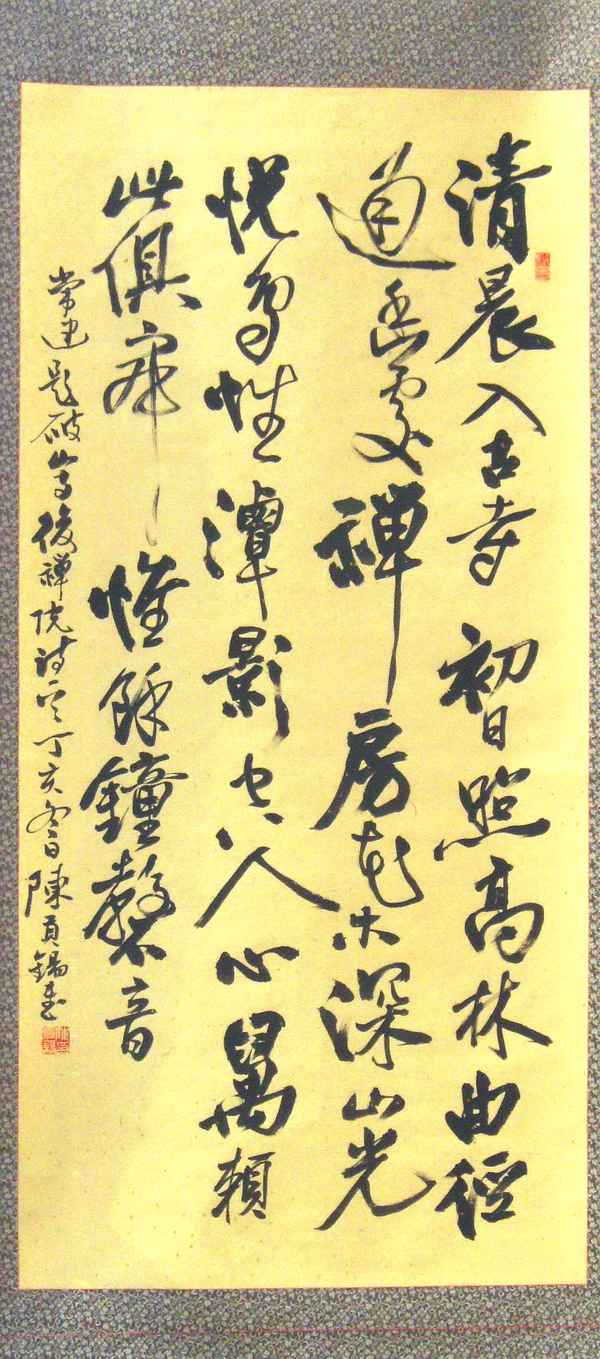 清晨入古寺初日照高林曲徑
通幽處禪房花木深山光
悅鳥性潭影空人心萬籟
此俱寂惟餘鐘磬音
常建題破山寺後禪院詩丁亥冬日陳錫書